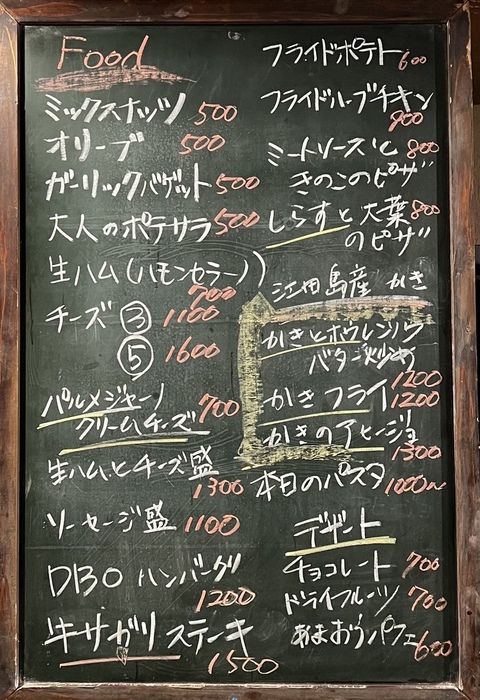 Food
ミックスナッツ 500
オリーブ 500
ガーリックバゲット 500
大人のポテサラ 500
生ハム(ハモンセラーノ)
700
チーズ ③ 1100
⑤ 1600
パルメジャーノ
クリームチーズ 700
生ハムとチーズ盛
1300
ソーセージ盛 1100
DBO ハンバーグ
1200
牛サガリステーキ
1500
フライドポテト 600
フライドハーブチキン
800
ミートソースと 800
きのこのピザ
しらすと大葉 800
のピザ
江田島産 かき
かきとホウレンソウ
バター炒め
1200
かきフライ 1200
かきのアヒージョ
1300
本日のパスタ 1000~
デザート
チョコレート 700
ドライフルーツ 700
あまおうパフェ 600